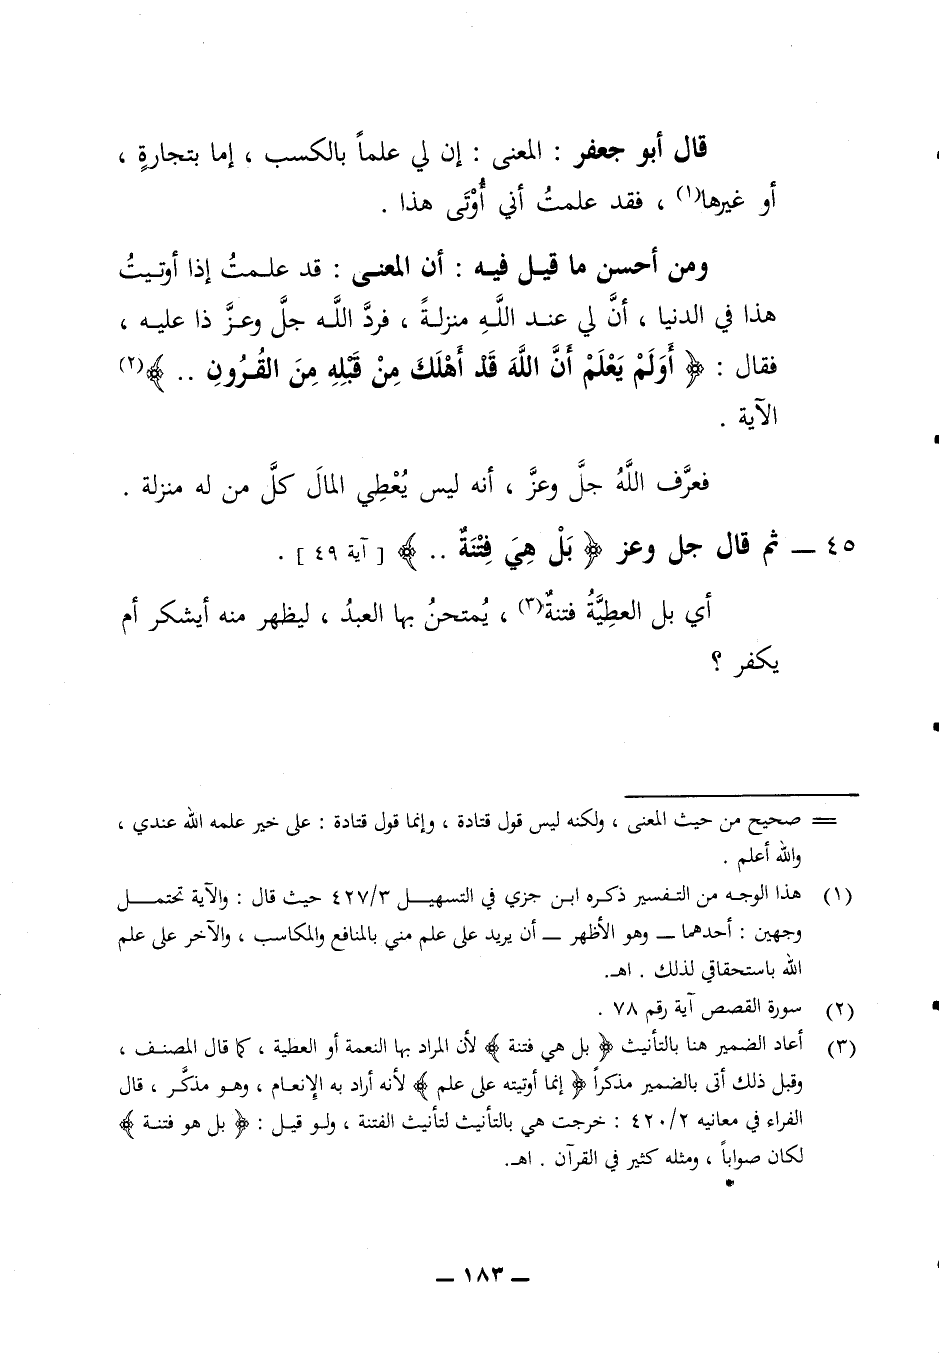 قال أبو جعفر : المعنى : إن لي علماً بالكسب ، إما بتجارةٍ ،
أو غيرها(١) ، فقد علمتُ أني أُوْتَى هذا .
ومن أحسن ما قيل فيه : أن المعنى : قد علمتُ إذا أوتيتُ
هذا في الدنيا ، أنَّ لي عند اللَّهِ منزلةً ، فردَّ اللَّه جلَّ وعزَّ ذا عليه ،
فقال : ﴿ أَوَلَمْ يَعْلَمْ أَنَّ اللَّهَ قَدْ أَهْلَكَ مِنْ قَبْلِهِ مِنَ القُرُونِ .. ﴾(٢)
الآية .
فعرَّف اللَّهُ جلَّ وعزَّ ، أنه ليس يُعْطِي المالَ كلَّ من له منزلة .
٤٥ — ثم قال جل وعز ﴿ بَلْ هِيَ فِتْنَةٌ .. ﴾ [ آية ٤٩ ] .
أي بل العطِيَّةُ فتنةٌ(٣) ، يُمتحنُ بها العبدُ ، ليظهر منه أيشكر أم
يكفر ؟
= صحيح من حيث المعنى ، ولكنه ليس قول قتادة ، وإنما قول قتادة : على خير علمه الله عندي ،
والله أعلم .
(١) هذا الوجه من التفسير ذكره ابن جزي في التسهيل ٤٢٧/٣ حيث قال : والآية تحتمل
وجهين : أحدهما — وهو الأظهر — أن يريد على علم مني بالمنافع والمكاسب ، والآخر على علم
الله باستحقاقي لذلك . اهـ.
(٢) سورة القصص آية رقم ٧٨ .
(٣) أعاد الضمير هنا بالتأنيث ﴿ بل هي فتنة ﴾ لأن المراد بها النعمة أو العطية ، كما قال المصنف ،
وقبل ذلك أتى بالضمير مذكراً ﴿ إنما أوتيته على علم ﴾ لأنه أراد به الإنعام ، وهو مذكَّر ، قال
الفراء في معانيه ٤٢٠/٢ : خرجت هي بالتأنيث لتأنيث الفتنة ، ولو قيل : ﴿ بل هو فتنة ﴾
لكان صواباً ، ومثله كثير في القرآن . اهـ.
— ١٨٣ —